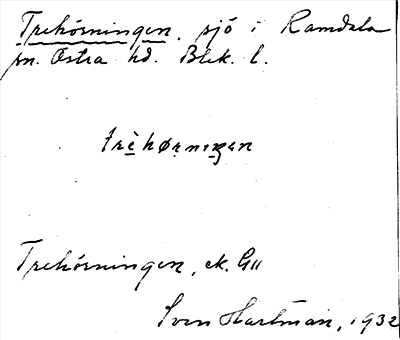 Trehörningen, sjö i Ramdala
sn. Östra hd. Blek. l.
trèhørnıŋen
Trehörningen, ek. G11
Sven Hartman, 1932